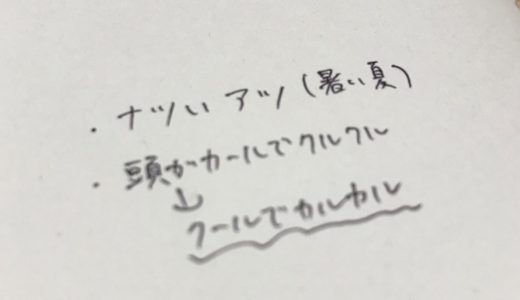 ・ナツい アツ(暑い夏)
・頭がカールでクルクル
↓
クールでカルカル